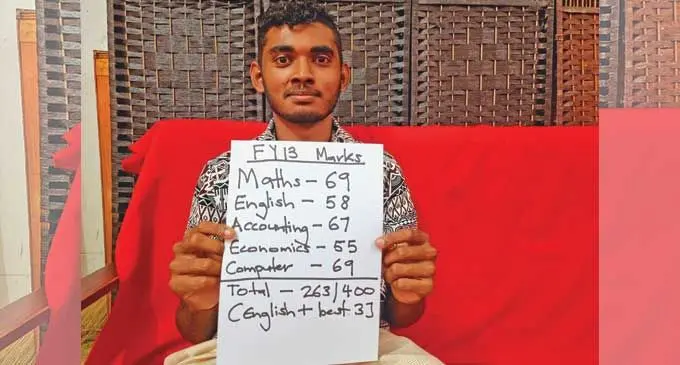 FY13 Marks
Maths - 69
English - 58
Accounting - 67
Economics - 55
Computer - 69
Total - 263/400
[English + best 3]